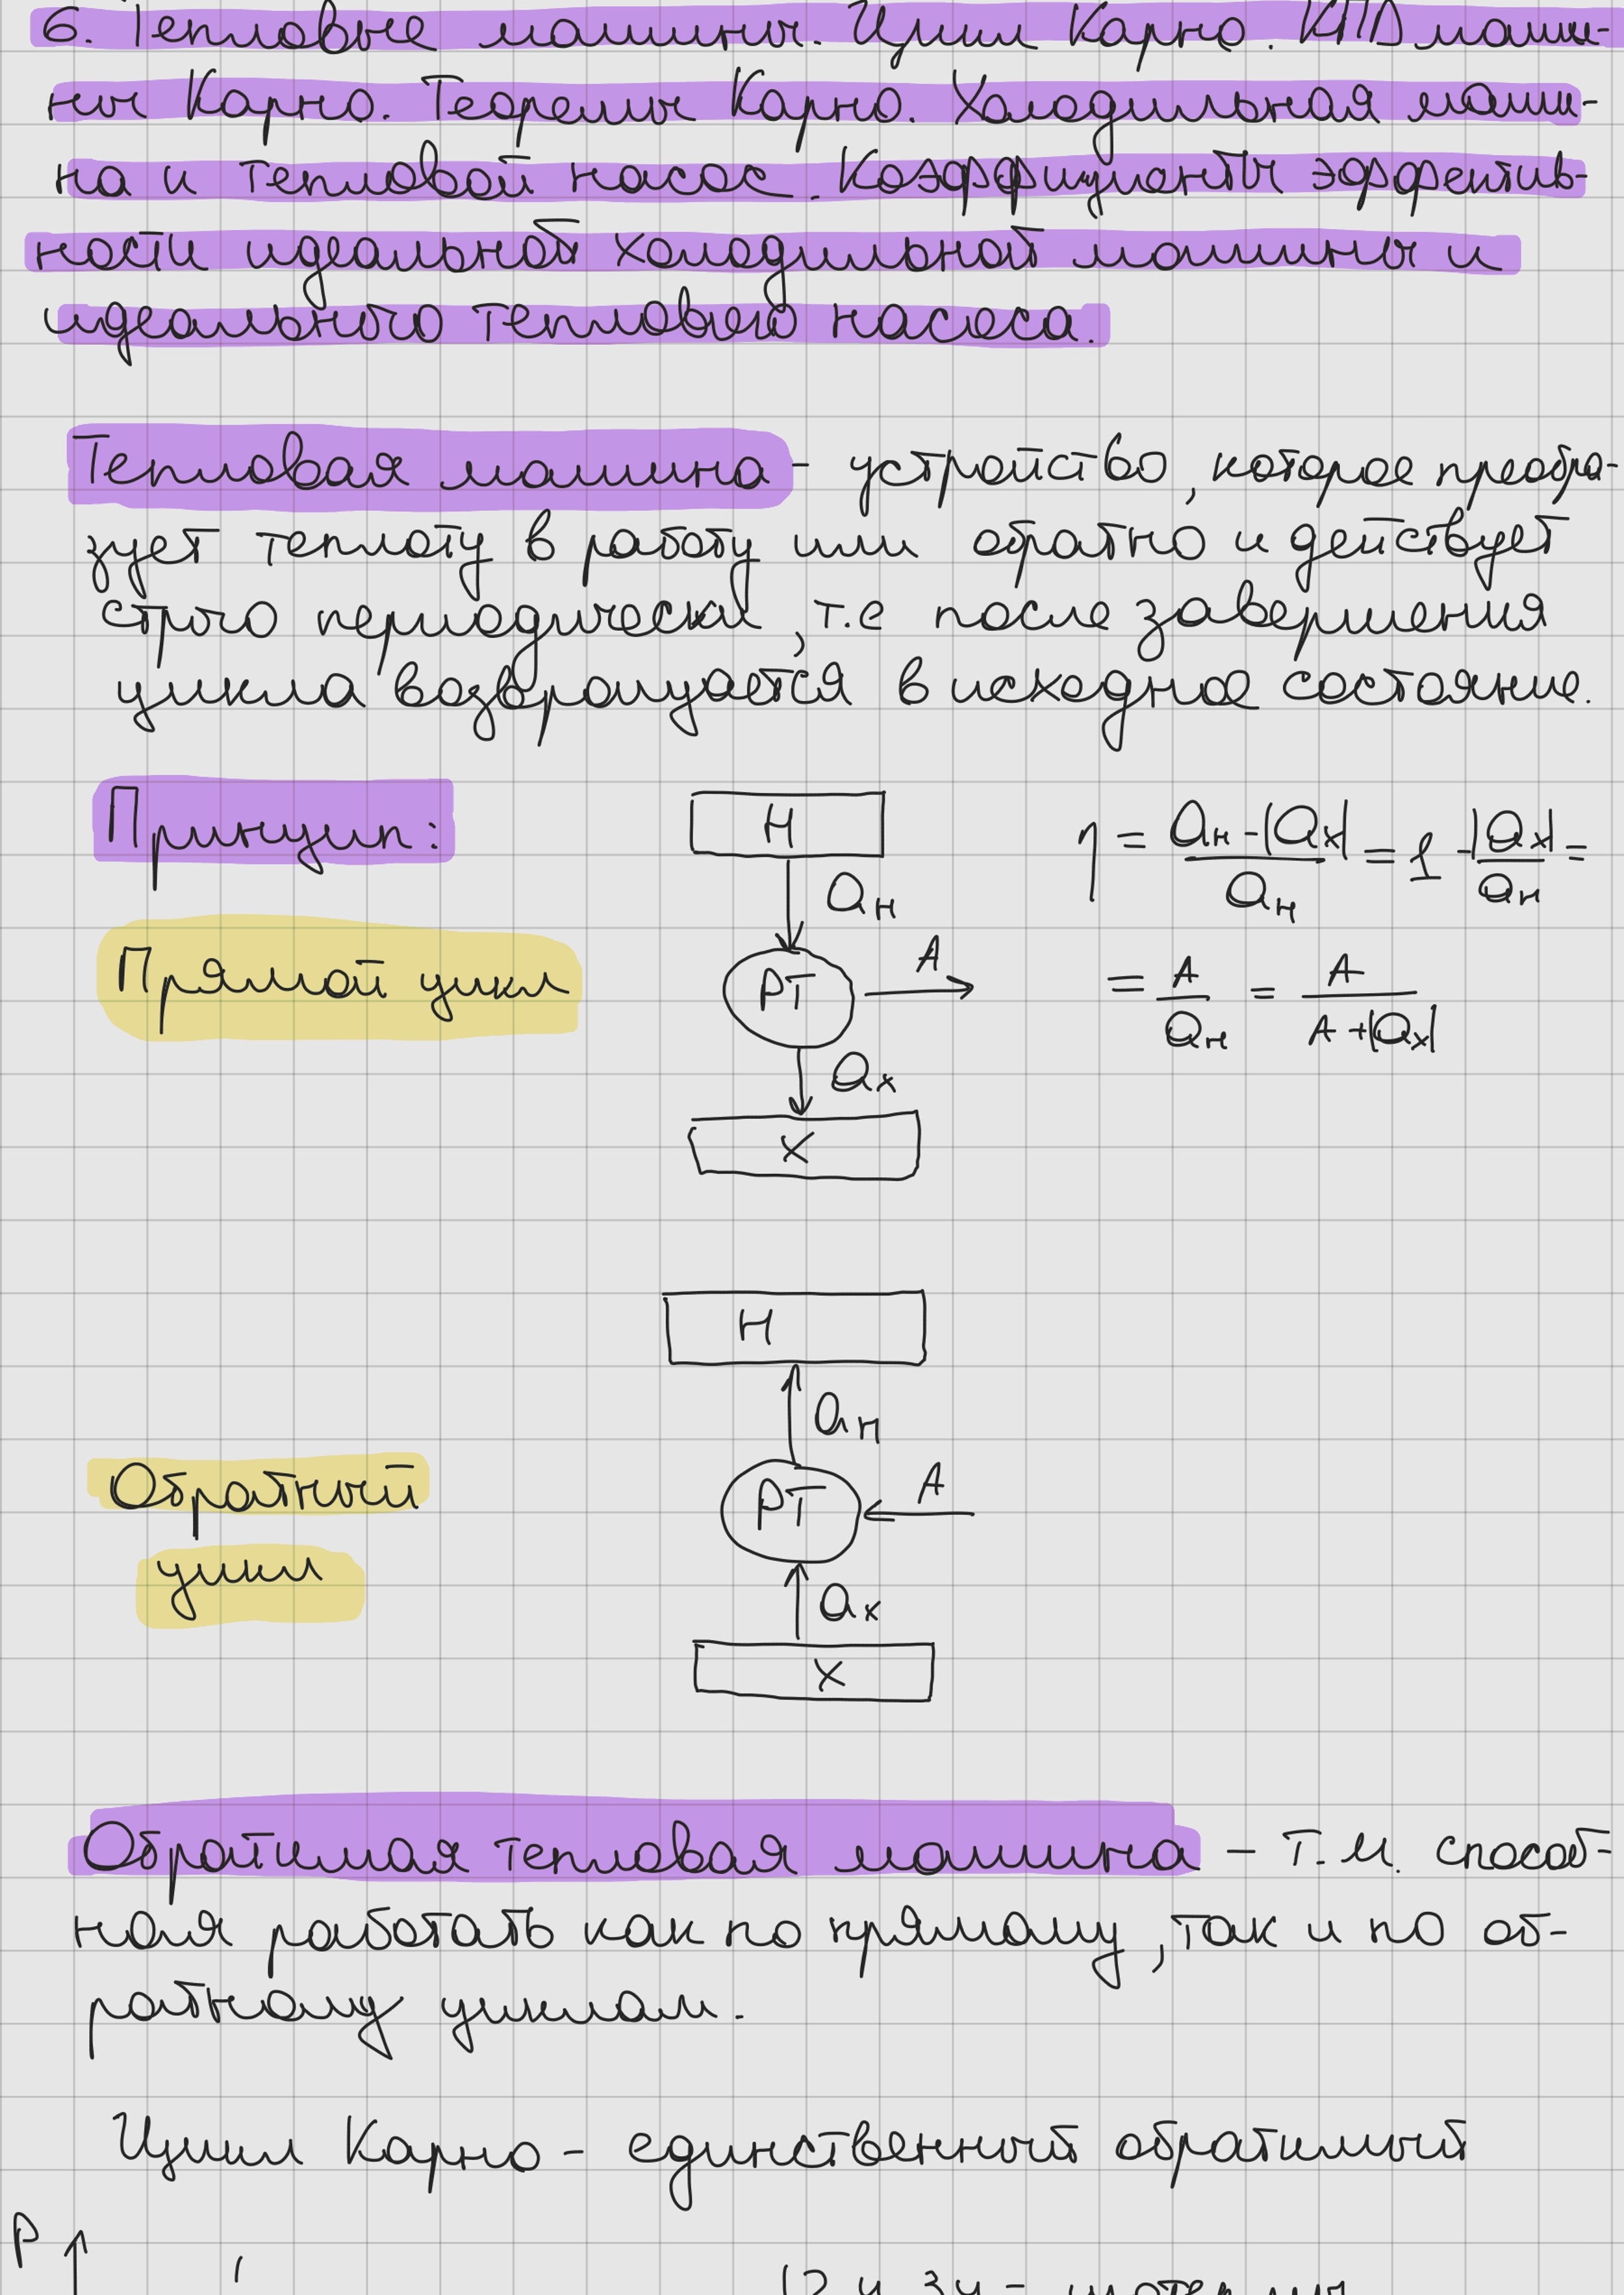 6. Тепловые машины. Цикл Карно. КПД маши-
ны Карно. Теоремы Карно. Холодильная маши-
на и тепловой насос. Коэффициенты эффектив-
ности идеальной холодильной машины и
идеального теплового насоса.
Тепловая машина - устройство, которое преобра-
зует теплоту в работу или обратно и действует
строго периодически, т.е после завершения
цикла возвращается в исходное состояние.
Принцип:
H
η = (Qн - |Qх|) / Qн = 1 - |Qх| / Qн =
Qн
Прямой цикл
РТ
A
= A / Qн = A / (A + |Qх|)
Qх
X
H
Qн
Обратный
цикл
РТ
A
Qх
X
Обратимая тепловая машина - Т.М. способ-
ная работать как по прямому, так и по об-
ратному циклам.
Цикл Карно - единственный обратимый
P